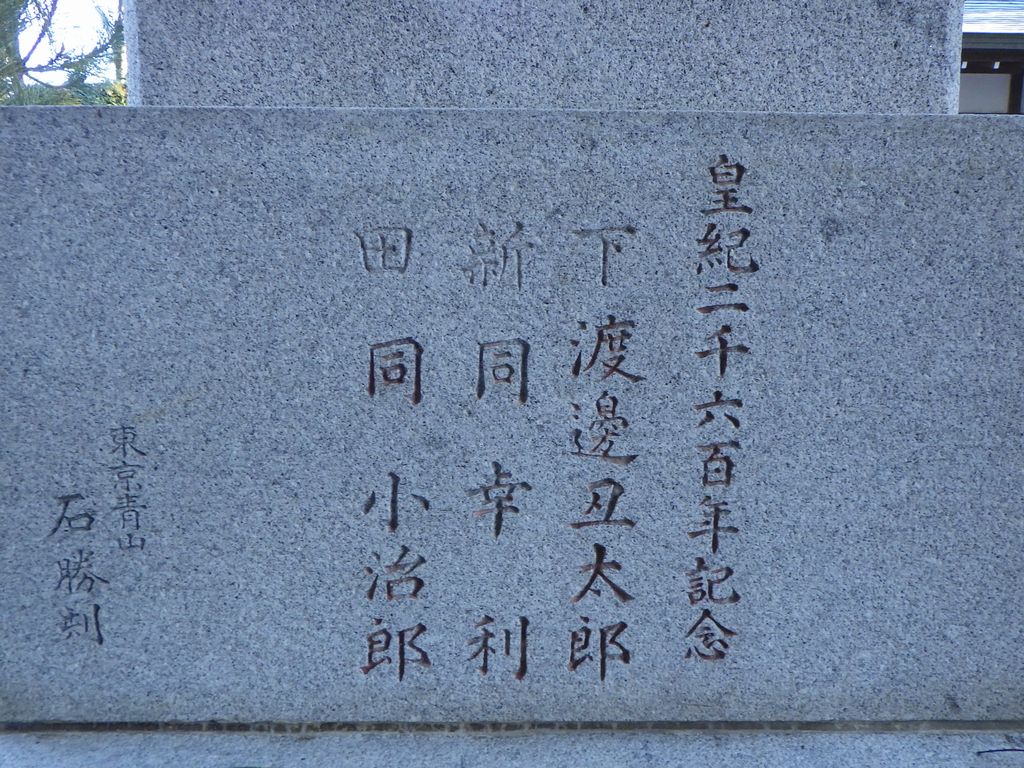 皇紀二千六百年記念
下渡邊丑太郎
新同幸利
田同小治郎
東京青山
石勝刻